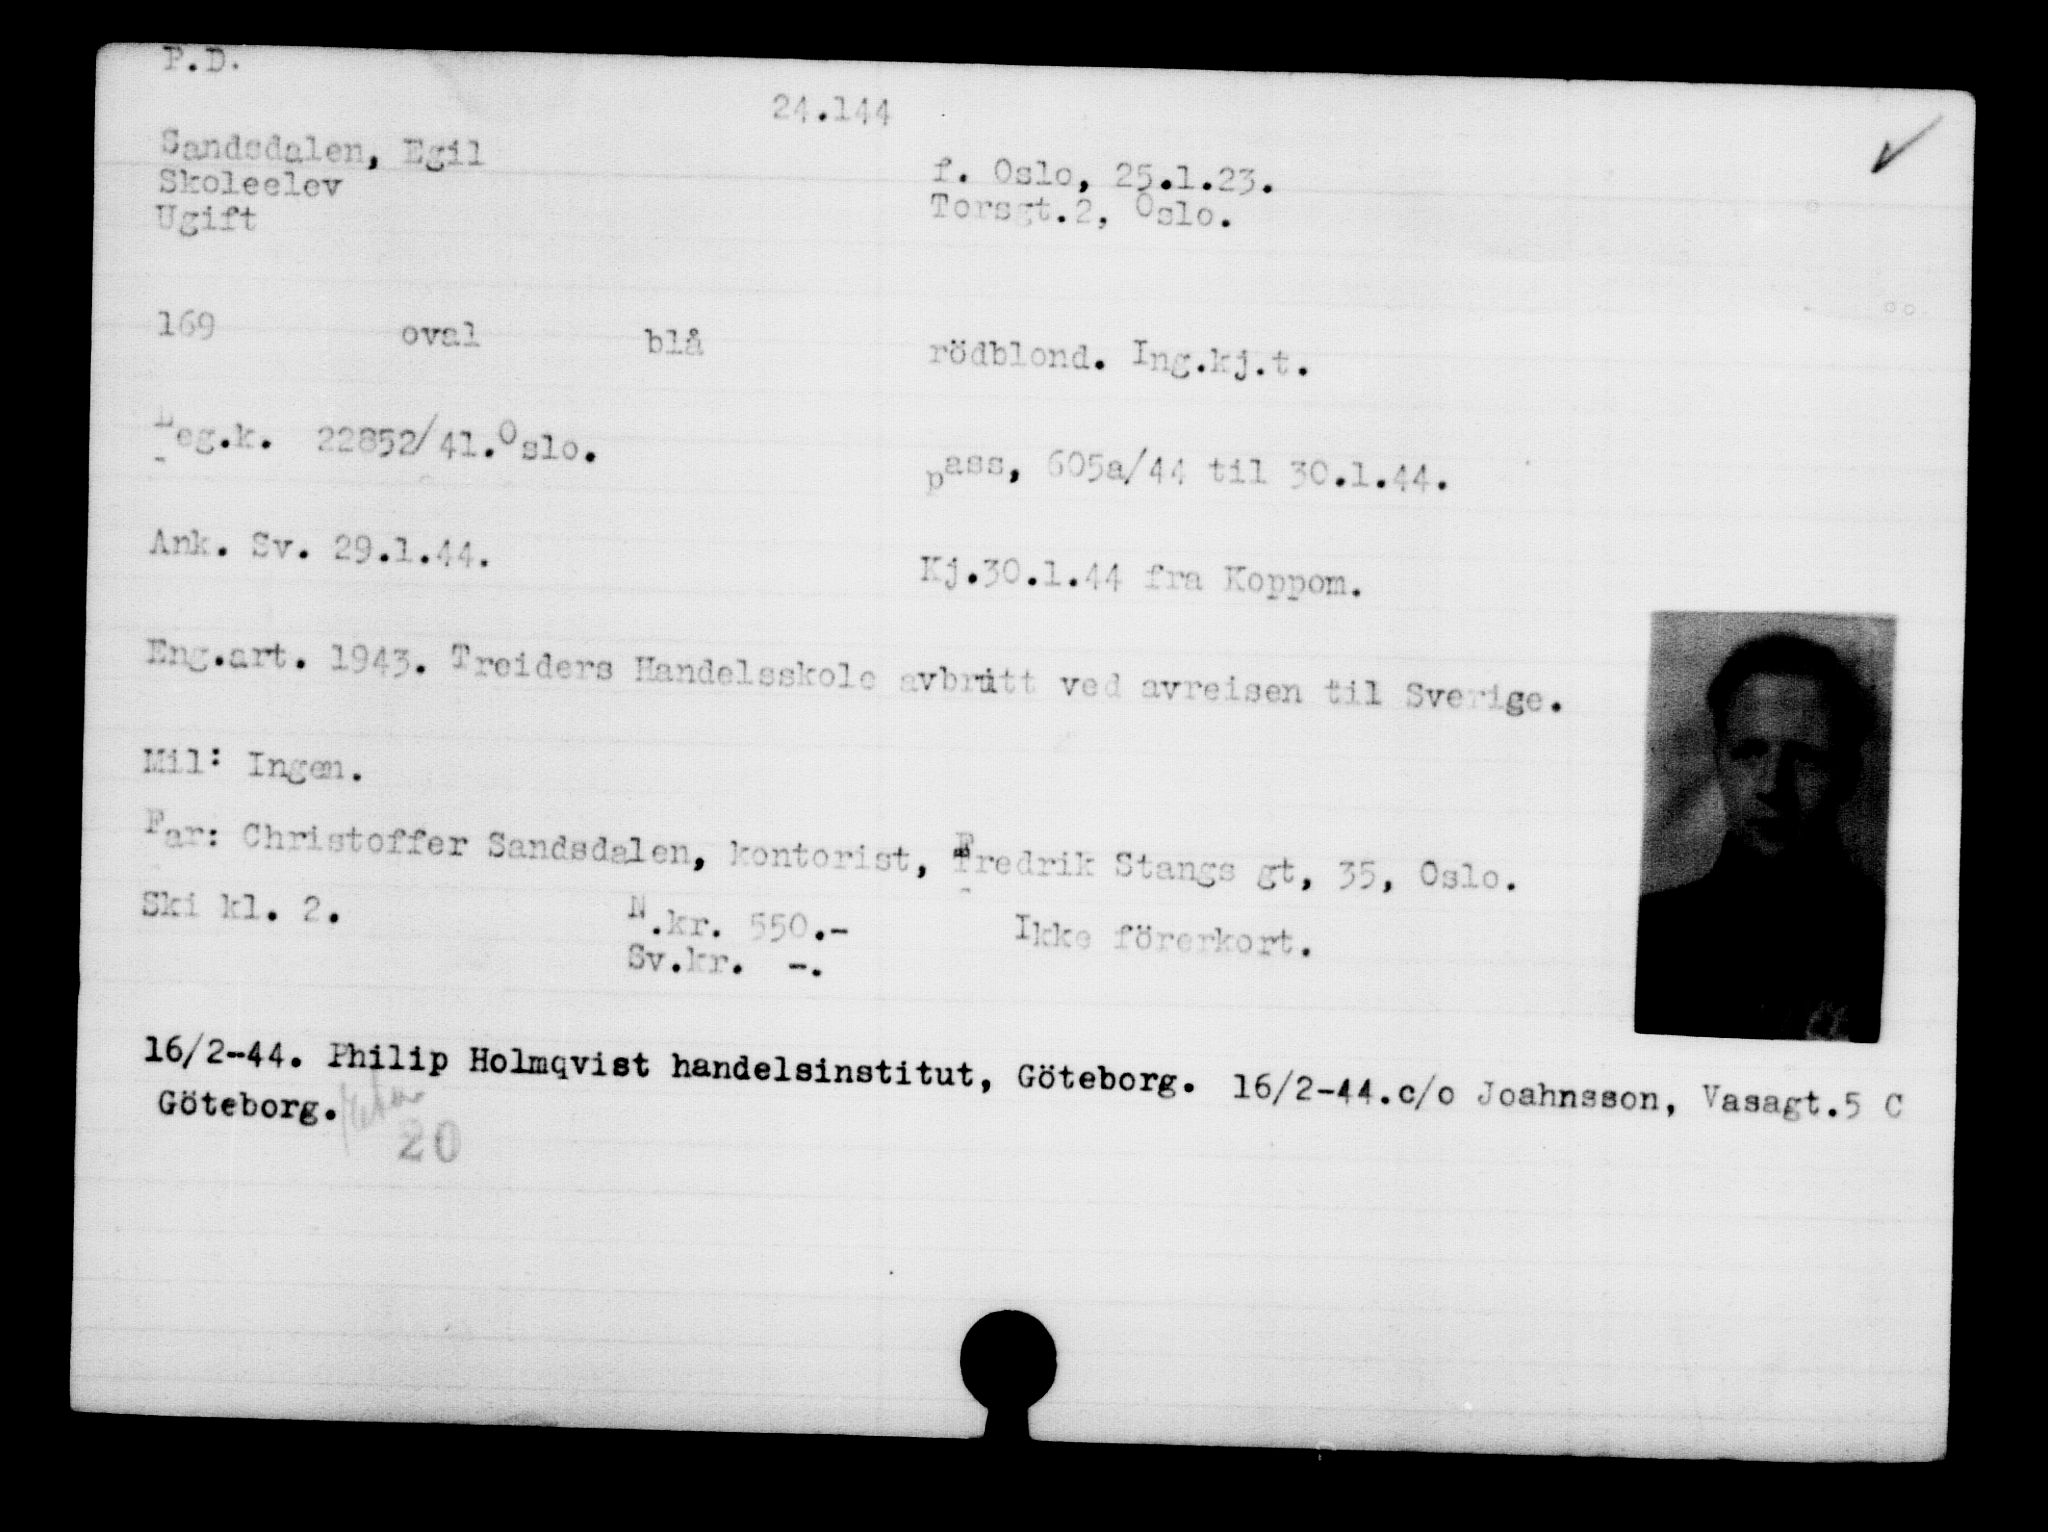 P.D.
24.144
Sandsdalen, Egil
f. Oslo, 25.1.23.
Skoleelev
Torsgt.2, Oslo.
Ugift
169 oval blå rödblond. Ing.kj.t.
Leg.k. 22852/41.Oslo.
pass, 605a/44 til 30.1.44.
Ank. Sv. 29.1.44.
Kj.30.1.44 fra Koppom.
Eng.art. 1943. Treiders Handelsskole avbrutt ved avreisen til Sverige.
Mil: Ingen.
Far: Christoffer Sandsdalen, kontorist, Fredrik Stangs gt, 35, Oslo.
Ski kl. 2. N.kr. 550.- Ikke förerkort.
Sv.kr. -.
16/2-44. Philip Holmqvist handelsinstitut, Göteborg. 16/2-44.c/o Joahnsson, Vasagt.5 C
Göteborg.
20